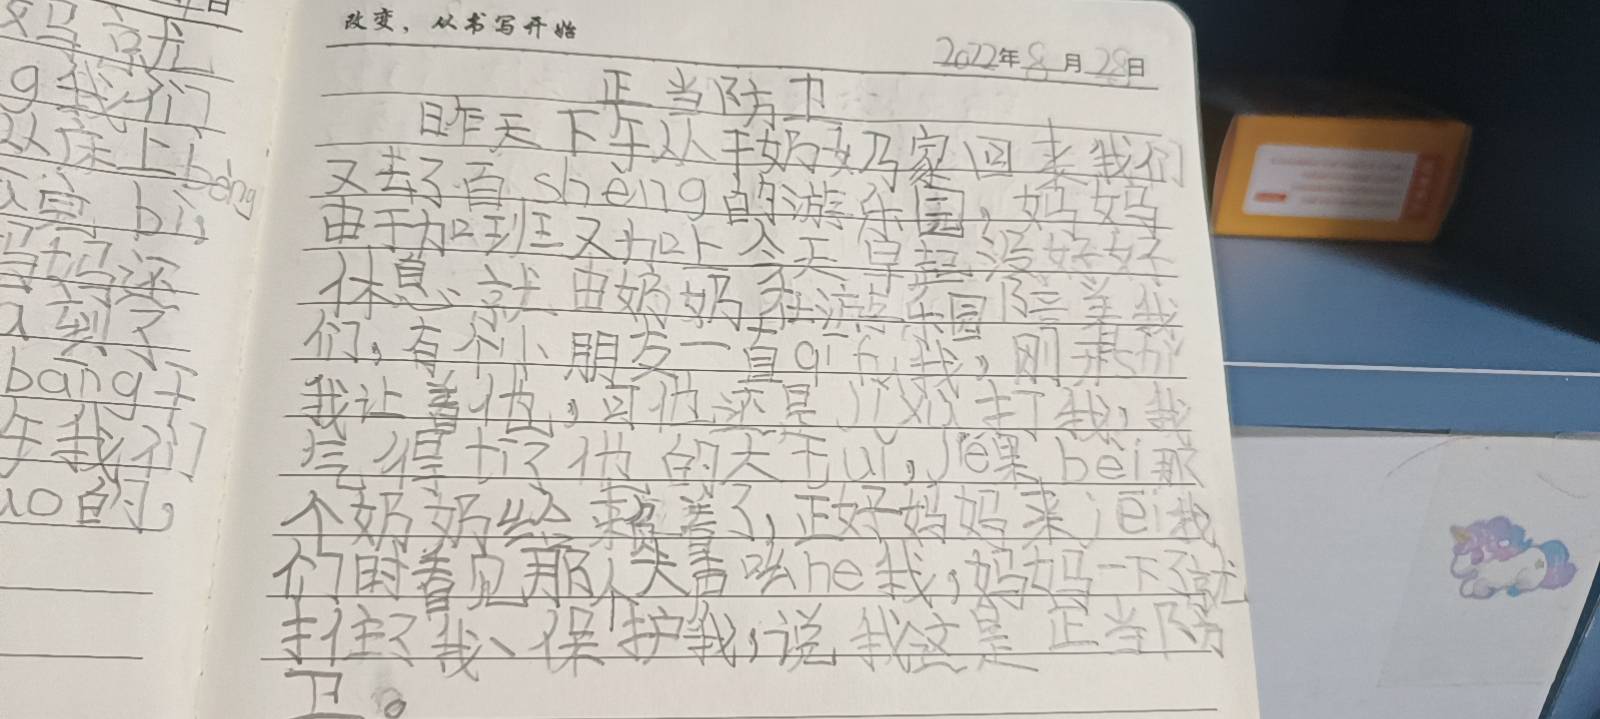 日
妈就
g我们
从床上bèng
bì,
妈妈还
a到了
bāng干
年我们
uo的,
改变，从书写开始
2022年8月28日
正当防卫
昨天下午从于奶奶家回来我们
又去了百shèng的游乐园,妈妈
由于加班又加上今天早起没好好
休息、就由奶奶在游乐园陪着我
们,有个小朋友一直qīfu我,刚开shǐ
我让着他,可他还是jìxù打我,我
打了他的大tuǐ,jié果bèi那
个奶奶了,正好妈妈来jēi我
们时看见那个大声he我,妈妈一下子就
了我、保护我,说我这是正当防
卫。